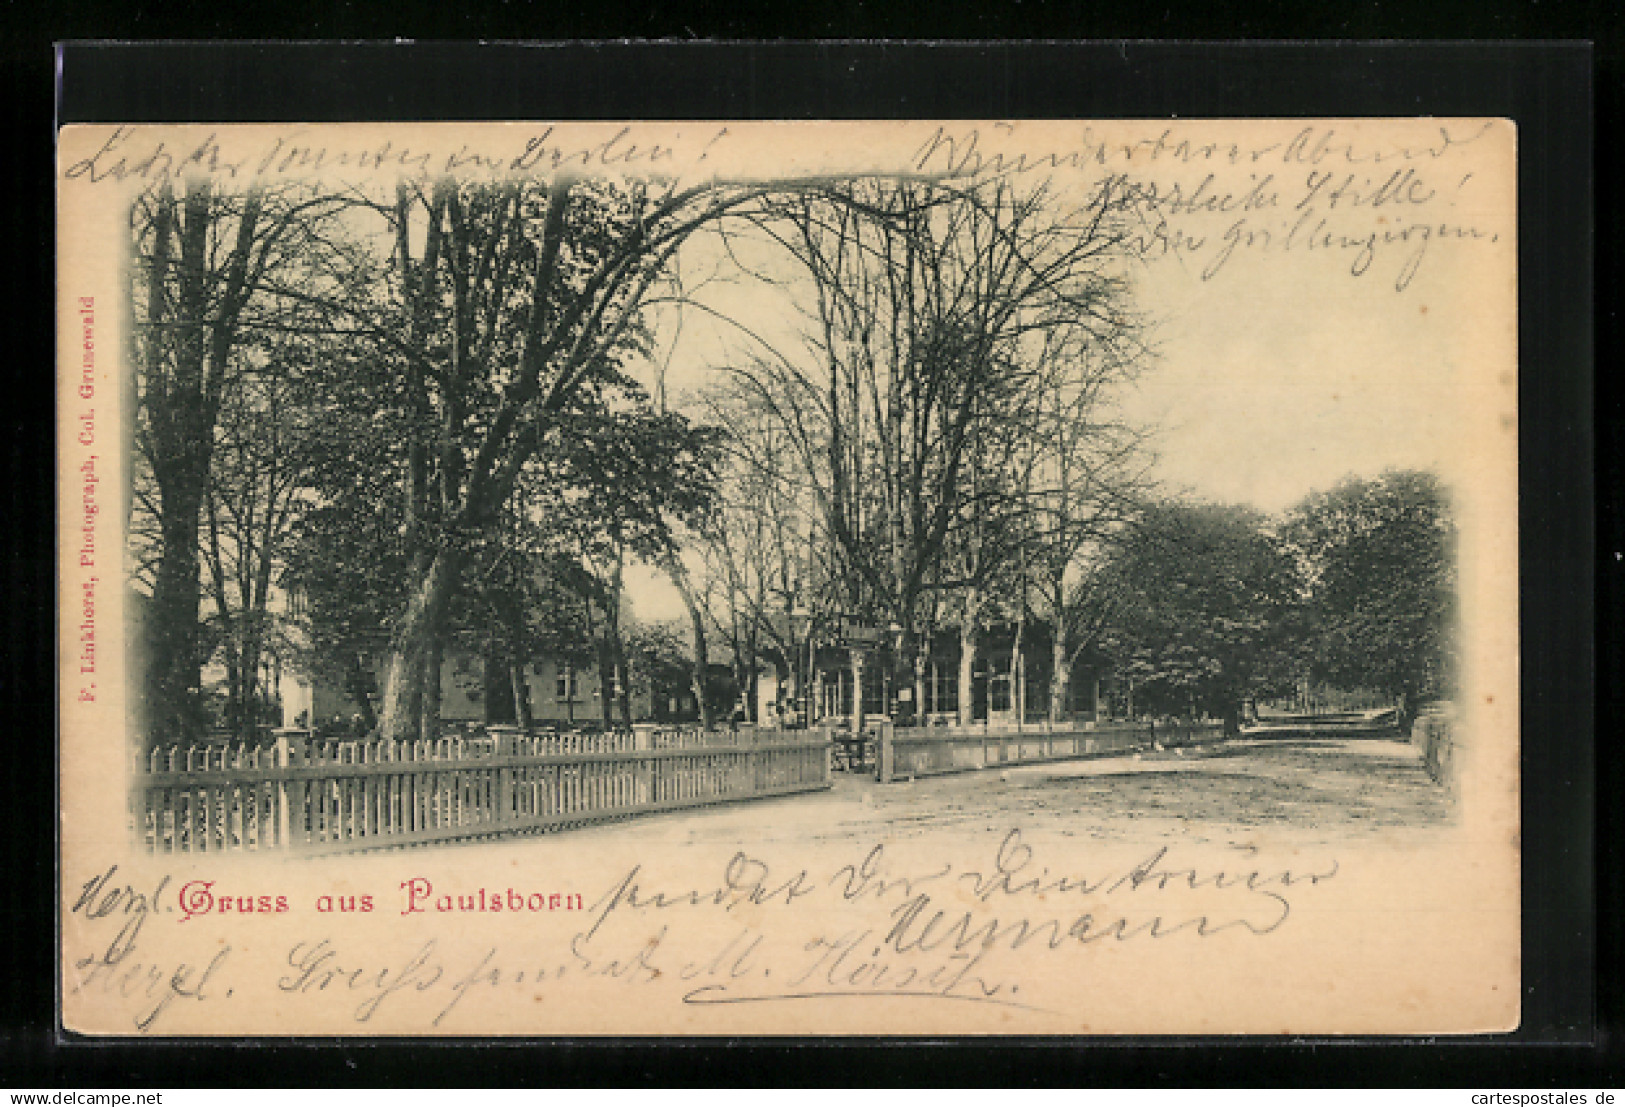 Letzter Sonntag in Berlin!
Wunderbarer Abend
Herzliche Stille!
die Grillenzirpen.
F. Linkhorst, Photograph, Col. Grunewald
Herzl. Gruss aus Paulsborn sendet Dir Dein treuer
Hermann
Herzl. Gruss sendet M.
My-OldPostcards
cartespostales de